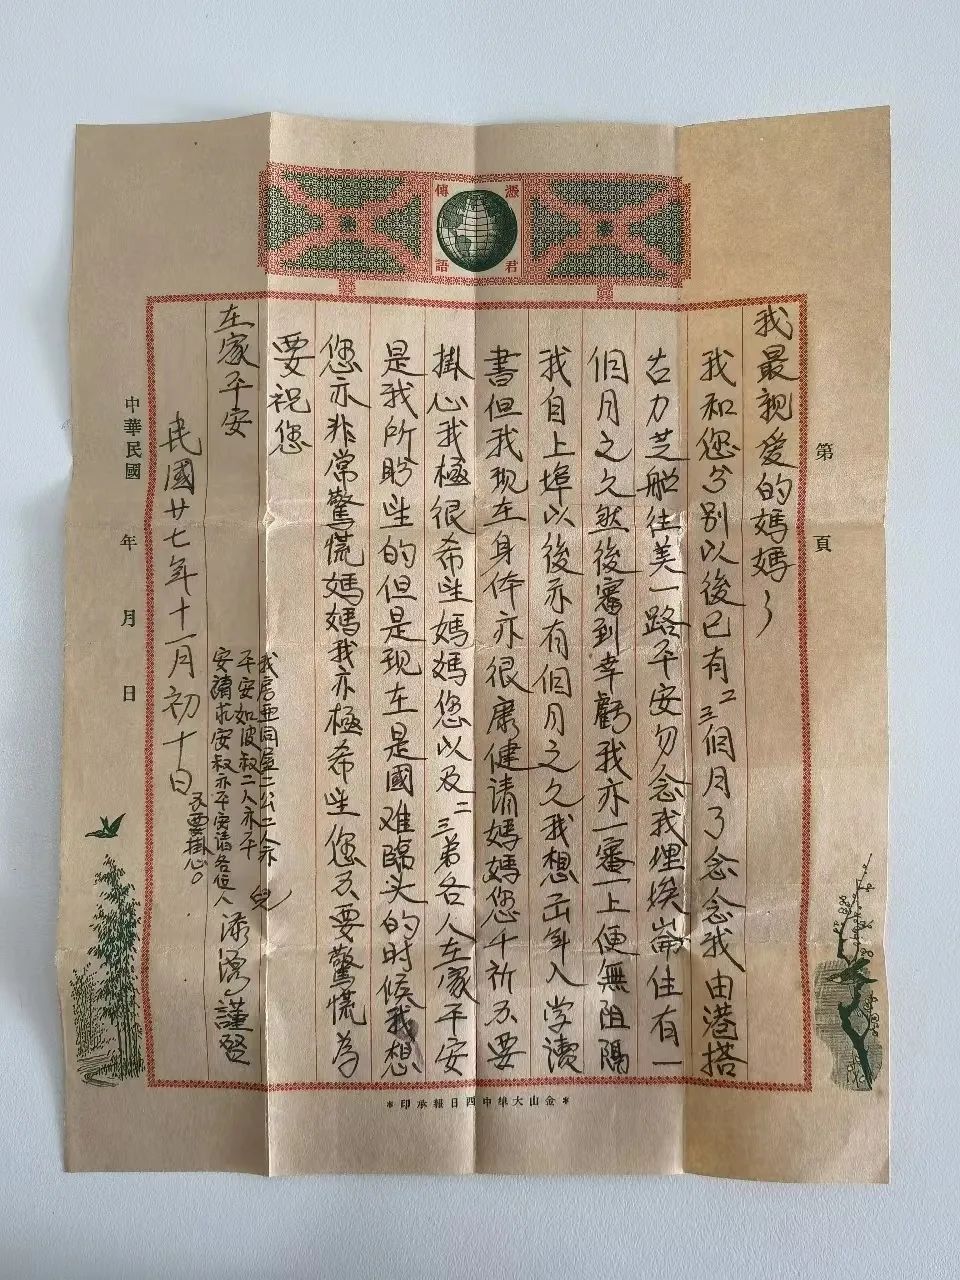 憑君
傳語
第 頁
我最親爱的媽媽
我和您分别以後已有二三個月了念念我由港搭
古力芝船往美一路平安勿念我埋埃崙住有一
個月之久然後審到幸虧我亦一審一上便無阻隔
我自上埠以後亦有個月之久我想出年入学讀
書但我现在身体亦很康健请媽媽您千祈不要
掛心我極很希望媽媽您以及二三弟各人在家平安
是我所盼望的但是现在是國难臨头的时候我想
您亦非常驚慌媽媽我亦極希望您不要驚慌為
要祝您
在家平安
兒 謹啓
我房亚同屋二公二人亦
平安如波叔二人亦平
安請求安叔亦平安請各位人
不要掛心。
民國廿七年十一月初十日
中華民國 年 月 日
*金山大埠中西日報承印*